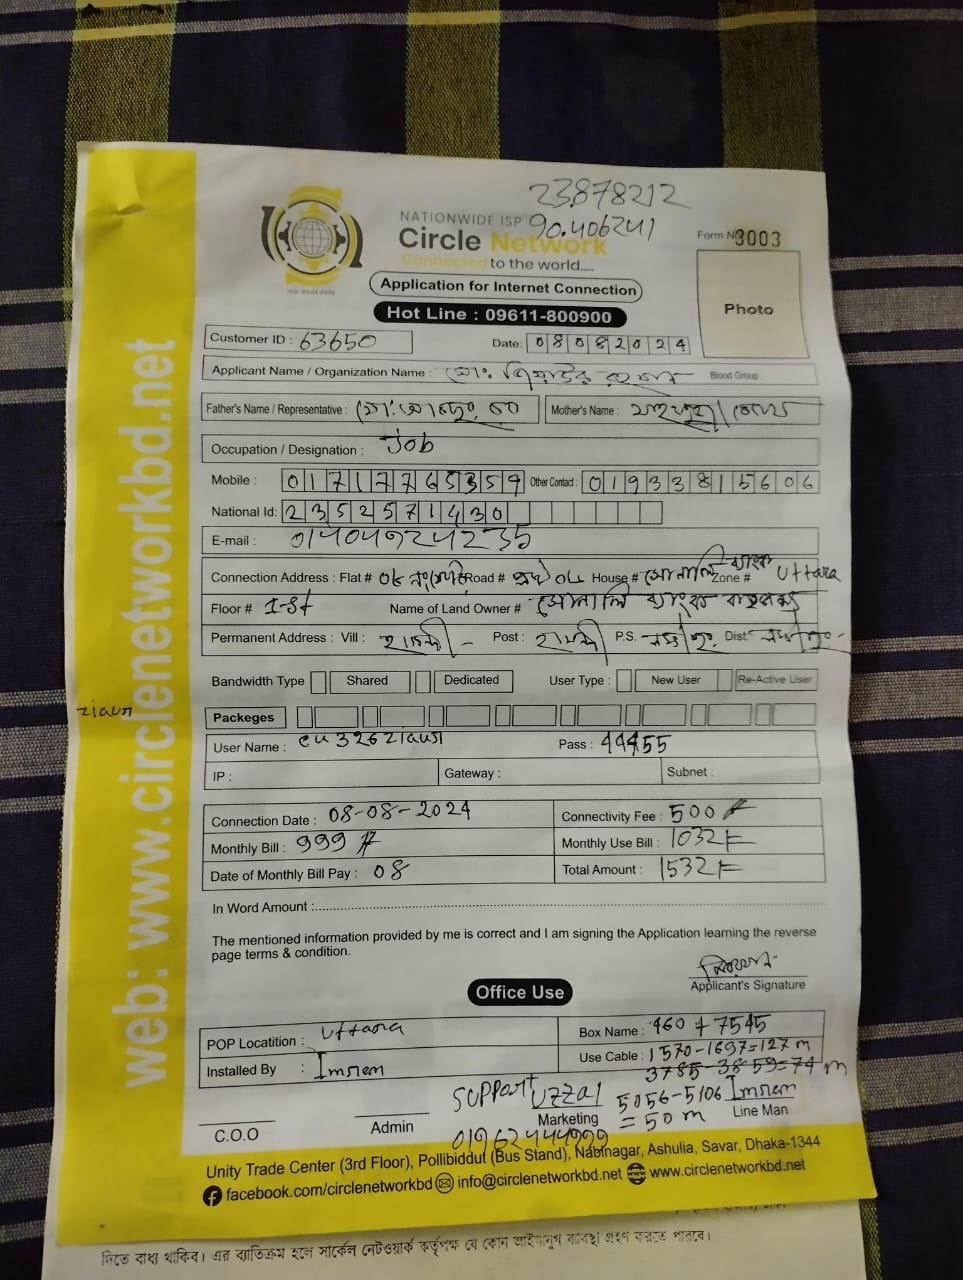 23.878212
90.406241
NATIONWIDE ISP
Circle Network
Connected to the world.....
ISO 9001:2015
Form No 3003
Application for Internet Connection
Hot Line : 09611-800900
Photo
Customer ID : 63650
Date: 08082024
Applicant Name / Organization Name : মো:
Blood Group
Father's Name / Representative : মো:
Mother's Name :
Occupation / Designation : Job
Mobile : 01717765359 Other Contact : 01933815606
National Id: 2352571430
E-mail : 01404924235
Connection Address : Flat # Road # House # সোনালি ব্যাংক Zone # Uttara
Floor # 1-St Name of Land Owner # সোনালি ব্যাংক
Permanent Address : Vill : Post : P.S. Dist:
Bandwidth Type Shared Dedicated User Type : New User Re-Active User
ziaur
Packeges
User Name : Pass : 44455
IP : Gateway : Subnet :
Connection Date : 08-08-2024 Connectivity Fee : 500
Monthly Bill : 999 Monthly Use Bill : 1032
Date of Monthly Bill Pay : 08 Total Amount : 1532
In Word Amount :
The mentioned information provided by me is correct and I am signing the Application learning the reverse
page terms & condition.
Applicant's Signature
Office Use
POP Locatition : Uttara Box Name : 960 + 7545
Installed By : Imram Use Cable : 1570-1697=127 m
3785-3859=74 m
Support Uzzal 5056-5106 Imram
= 50 m
C.O.O Admin Marketing Line Man
01962444999
Unity Trade Center (3rd Floor), Pollibiddut (Bus Stand), Nabinagar, Ashulia, Savar, Dhaka-1344
facebook.com/circlenetworkbd info@circlenetworkbd.net www.circlenetworkbd.net
web: www.circlenetworkbd.net
দিতে বাধ্য থাকিব। এর ব্যতিক্রম হলে সার্কেল নেটওয়ার্ক কর্তৃপক্ষ যে কোন আইনানুগ ব্যবস্থা গ্রহণ করতে পারবে।